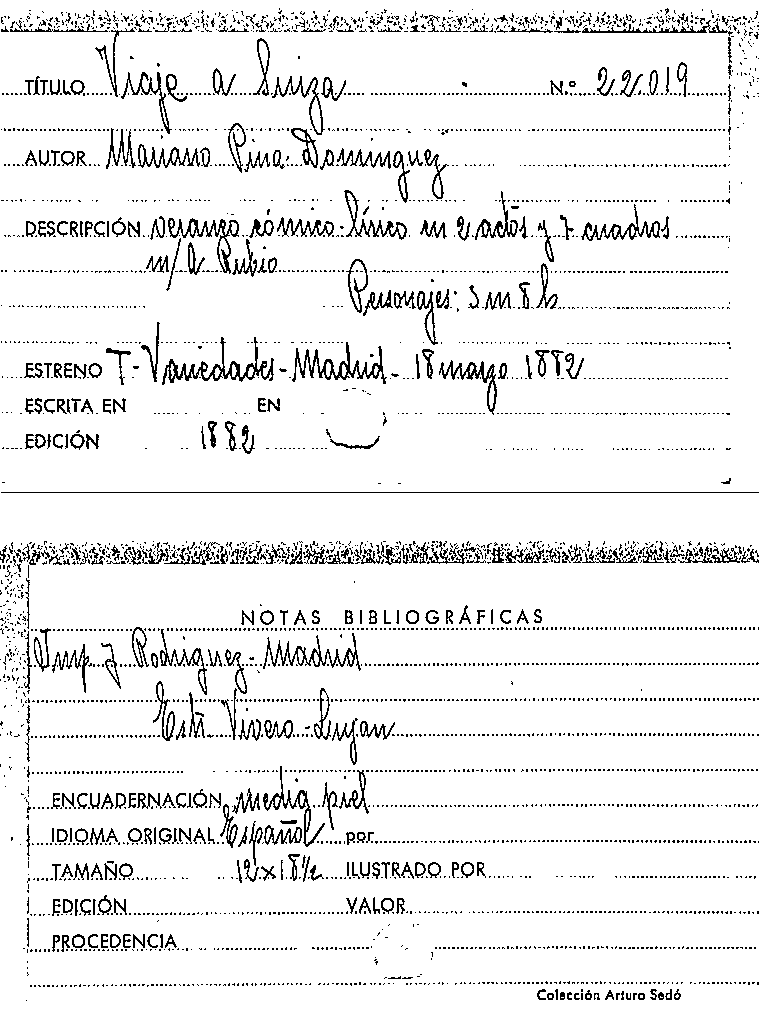 TÍTULO Viaje a Suiza N.º 22.019
AUTOR Mariano Pina Dominguez
DESCRIPCIÓN veraneo cómico-lírico en 2 actos y 7 cuadros
m/ A Rubio
Personajes: 3 m 8 h
ESTRENO T. Variedades - Madrid - 18 marzo 1882
ESCRITA EN EN
EDICIÓN 1882
NOTAS BIBLIOGRÁFICAS
Imp J Rodriguez - Madrid
Estr. Vivero - Lujan
ENCUADERNACIÓN media piel
IDIOMA ORIGINAL Español por
TAMAÑO 12 x 18 1/2 ILUSTRADO POR
EDICIÓN VALOR
PROCEDENCIA
Colección Arturo Sedó